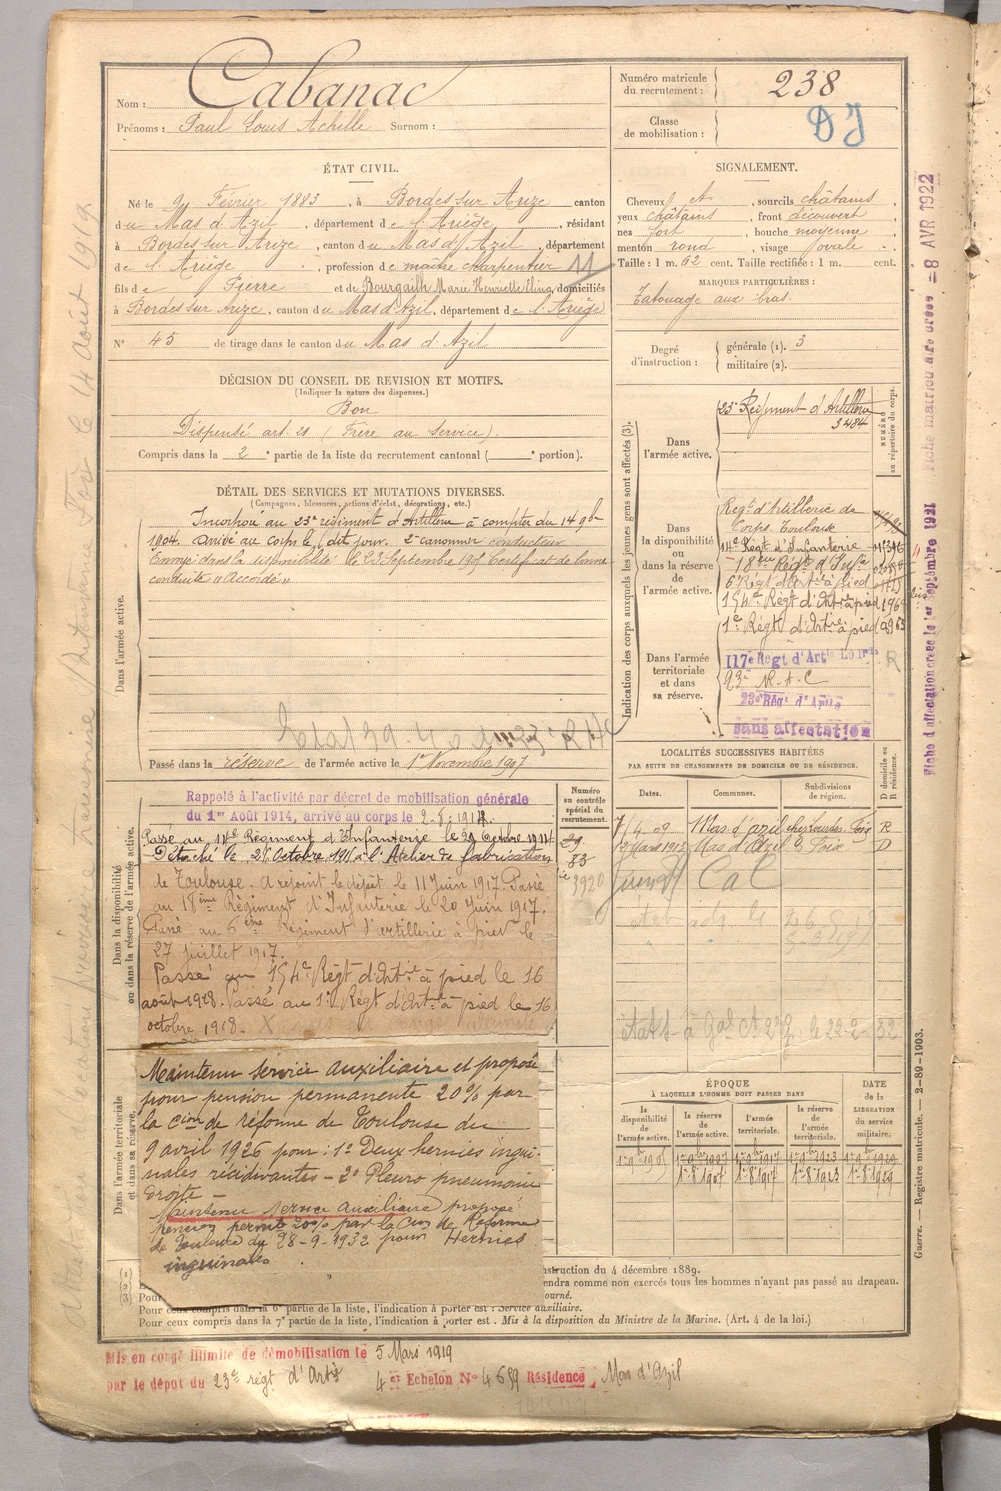 Nom : Cabanac
Prénoms : Paul Louis Achille Surnom :
Numéro matricule du recrutement : 238
Classe de mobilisation :
DJ
ÉTAT CIVIL.
Né le 9 Février 1883, à Bordes sur Arize canton
du Mas d'Azil, département de l'Ariège, résidant
à Bordes sur Arize, canton du Mas d'Azil, département
de l'Ariège, profession de maître charpentier 11
fils de Pierre et de Bourgailh Marie Henriette Elina, domiciliés
à Bordes sur Arize, canton du Mas d'Azil, département de l'Ariège
N° 45 de tirage dans le canton du Mas d'Azil
SIGNALEMENT.
Cheveux et, sourcils châtains,
yeux châtains, front découvert,
nez fort, bouche moyenne,
menton rond, visage ovale.
Taille : 1 m. 62 cent. Taille rectifiée : 1 m. cent.
MARQUES PARTICULIÈRES :
Tatouage aux bras.
Degré d'instruction : générale (1). 3
militaire (2).
DÉCISION DU CONSEIL DE REVISION ET MOTIFS.
(Indiquer la nature des dispenses.)
Bon
Dispensé art. 21 (Frère au Service).
Compris dans la 2e partie de la liste du recrutement cantonal ( e portion).
DÉTAIL DES SERVICES ET MUTATIONS DIVERSES.
(Campagnes, blessures, actions d'éclat, décorations, etc.)
Dans l'armée active.
Incorporé au 23e régiment d'Artillerie à compter du 14 9bre
1904. arrivé au corps le dit jour. 2e canonnier conducteur
Envoyé dans la disponibilité le 23 Septembre 1905 Certificat de bonne
conduite « Accordé »
Passé dans la réserve de l'armée active le 1er Novembre 1907
Indication des corps auxquels les jeunes gens sont affectés (3).
NUMÉRO au répertoire du corps.
Dans l'armée active.
23e Régiment d'Artillerie
3484
Dans la disponibilité ou dans la réserve de l'armée active.
Regt d'Artillerie de
Corps. Toulouse
14e Régt d'Infanterie
18eme Régt d'Infie
6e Régt d'Artie à pied
154e Régt d'Artie à pied
1er Régt d'Artie à pied
Dans l'armée territoriale et dans sa réserve.
117e Régt d'Artie Lourde R
23e R.A.C
23e Régt d'Artie
sans affectation
LOCALITÉS SUCCESSIVES HABITÉES
PAR SUITE DE CHANGEMENTS DE DOMICILE OU DE RÉSIDENCE.
Dates. Communes. Subdivisions de région. D domicile ou R résidence.
7/4 09 Mas d'azil Foix R
Mas d'Azil Foix D
Dans la disponibilité ou dans la réserve de l'armée active.
Numéro au contrôle spécial du recrutement.
Rappelé à l'activité par décret de mobilisation générale
du 1er Août 1914, arrivé au corps le 2-8-1914.
Passé au 14e Régiment d'Infanterie le 29 Octobre 1914
Détaché le 21 Octobre 1915 à l'Atelier de fabrication
de Toulouse. A rejoint le dépôt le 11 Juin 1917. Passé
au 18ème Régiment d'Infanterie le 20 Juin 1917.
Passé au 6ème Régiment d'artillerie à pied le
27 juillet 1917.
Passé au 154e Régt d'Artie à pied le 16
août 1918. Passé au 1er Régt d'Artie à pied le 16
octobre 1918.
Dans l'armée territoriale et dans sa réserve.
Maintenu service auxiliaire et proposé
pour pension permanente 20% par
la Cion de réforme de Toulouse du
9 avril 1926 pour : 1° Deux hernies ingui-
nales récidivantes – 2° Pleuro pneumonie
droite –
Maintenu Service auxiliaire proposé
pension permte 20% par la Cion de Réforme
de Toulouse du 28-9-1932 pour Hernies
inguinales
ÉPOQUE
À LAQUELLE L'HOMME DOIT PASSER DANS
la disponibilité de l'armée active. la réserve de l'armée active. l'armée territoriale. la réserve de l'armée territoriale.
DATE de la LIBÉRATION du service militaire.
1er 9b 1905 1er 9b 1907 1er 9b 1917 1er 9b 1923 1er 9b 1929
1-8 1907 1-8 1917 1-8 1923 1-8 1929
(1) struction du 4 décembre 1889.
(2) endra comme non exercés tous les hommes n'ayant pas passé au drapeau.
(3) Pour ourné.
Pour ceux compris dans la 6e partie de la liste, l'indication à porter est : Service auxiliaire.
Pour ceux compris dans la 7e partie de la liste, l'indication à porter est : Mis à la disposition du Ministre de la Marine. (Art. 4 de la loi.)
Mis en congé illimité de démobilisation le 5 Mars 1919
par le dépôt du 23e régt d'Artie 4er Echelon N° 4659 Résidence, Mas d'Azil
Fiche matriculaire créée -8 AVR 1922
Fiche d'affectation créée le 1er Septembre 1921
Guerre. — Registre matricule. — 2-89-1903.